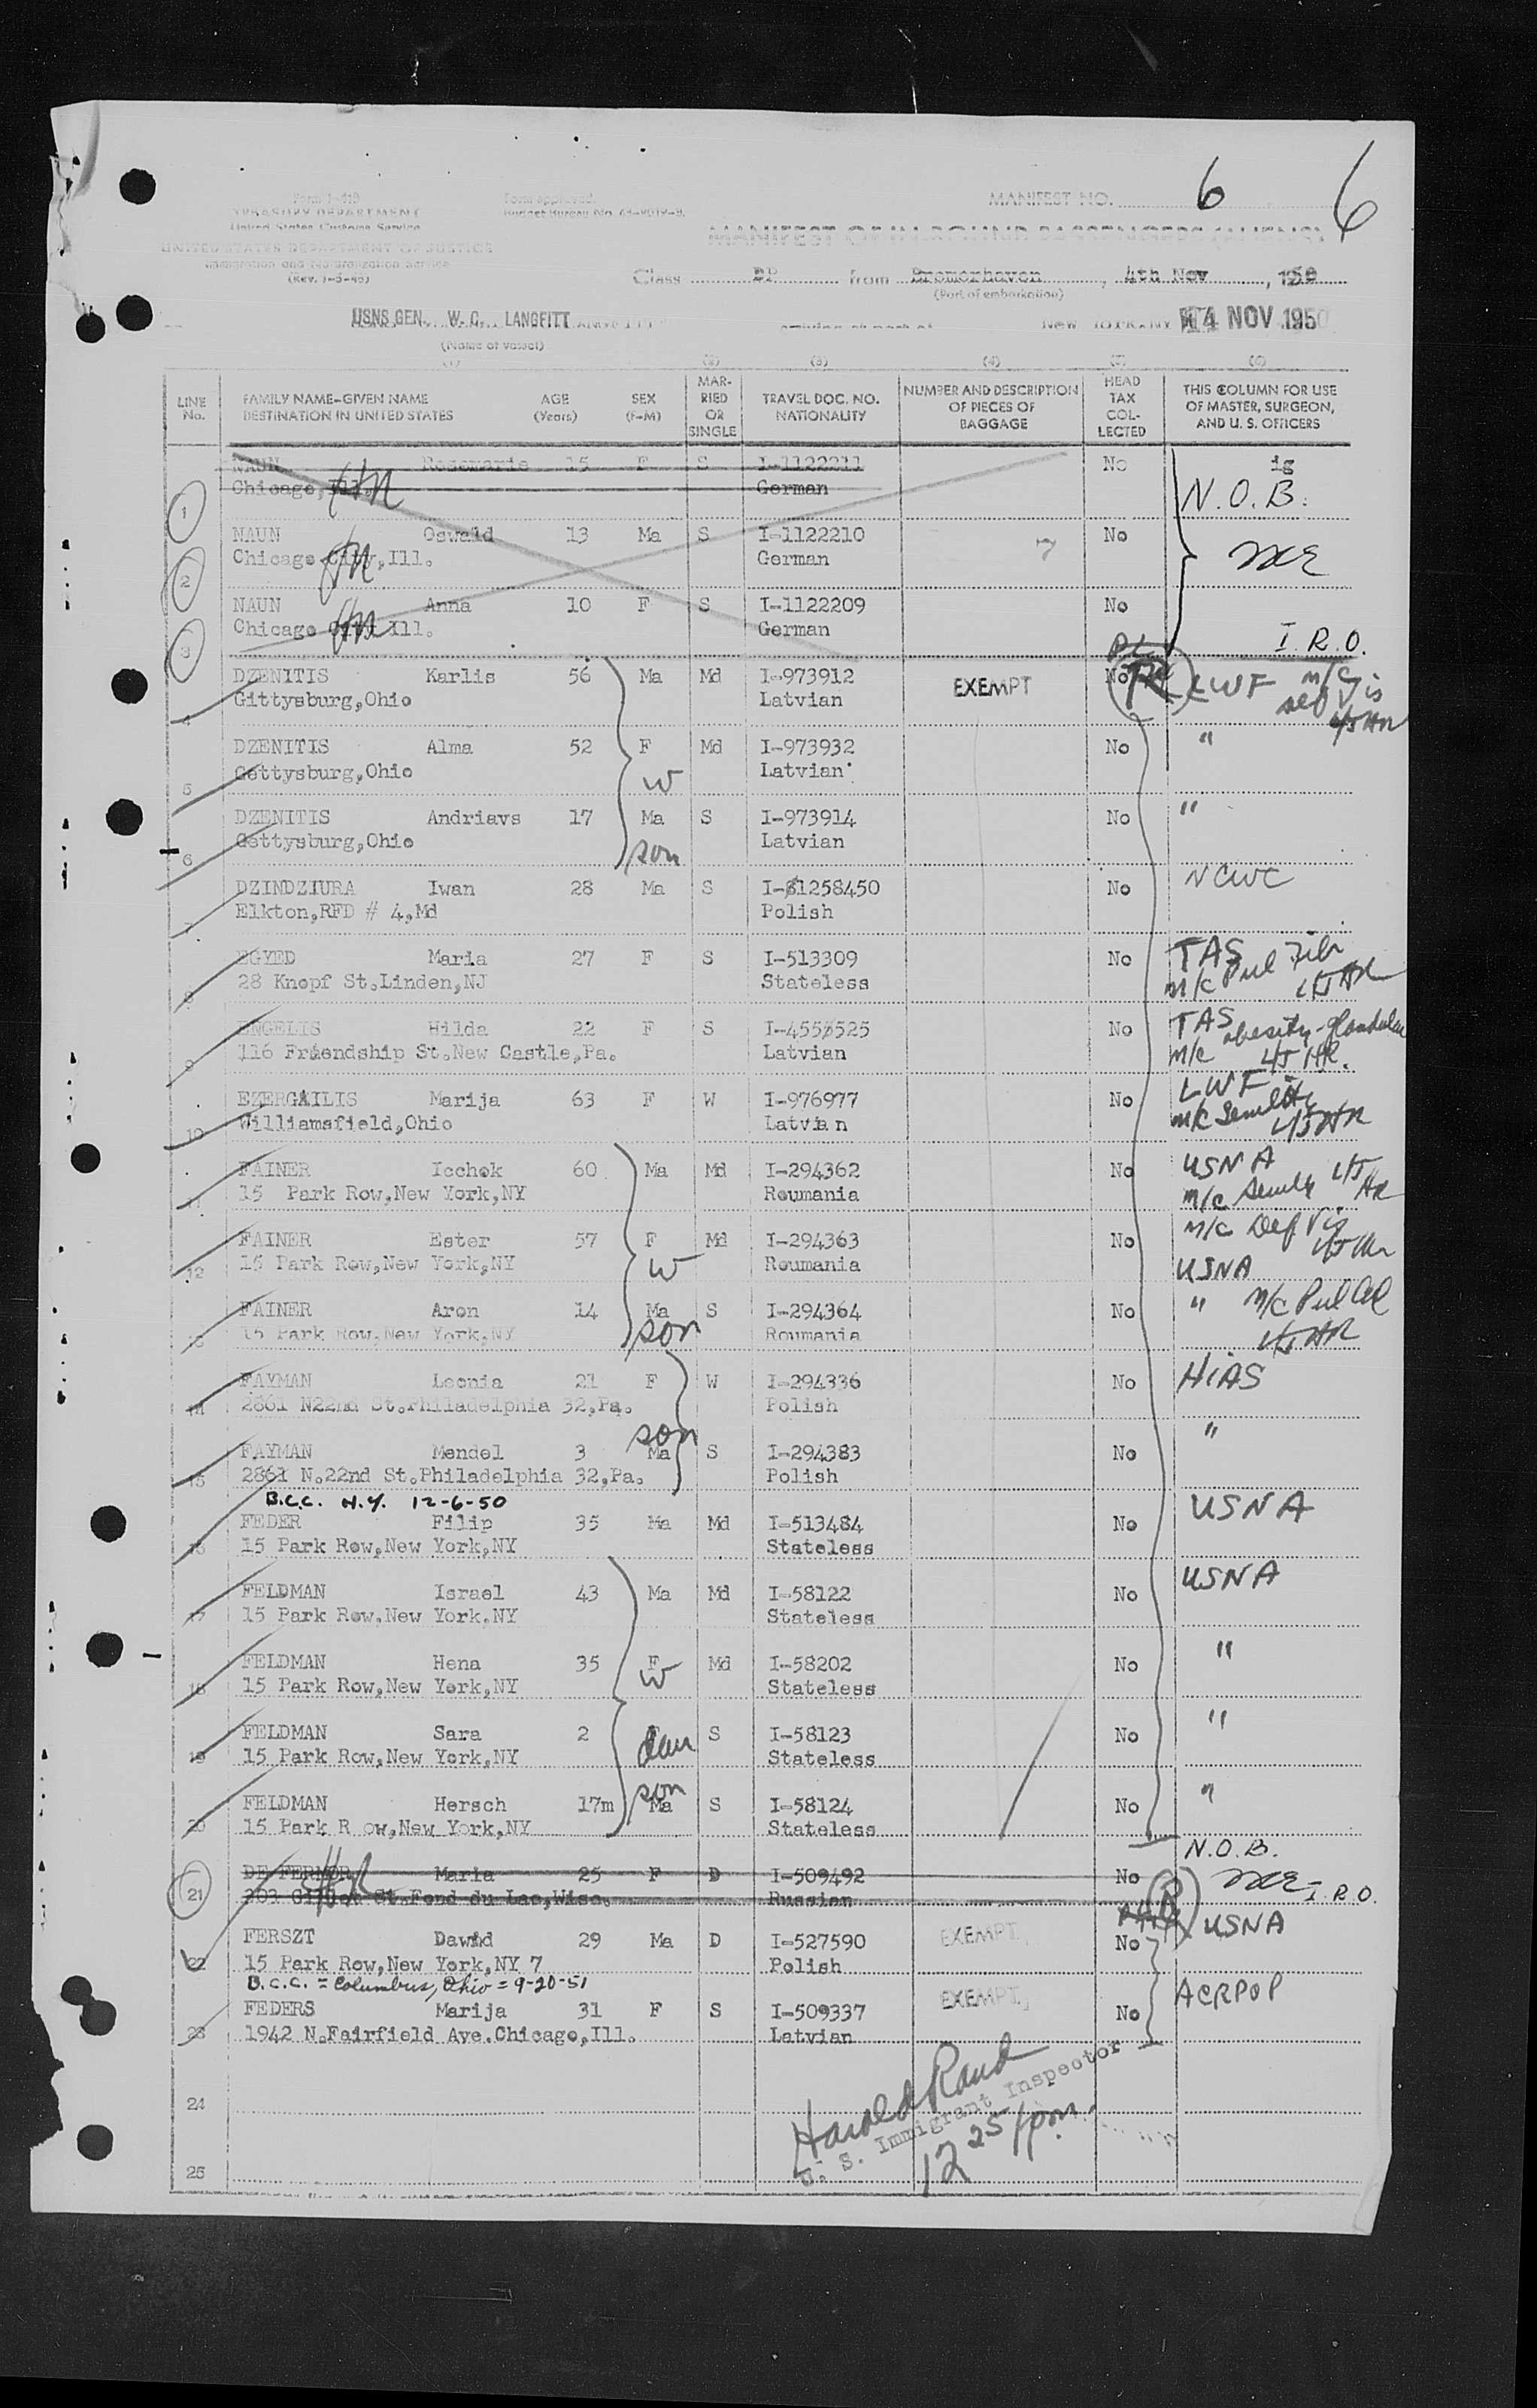 6
6
Form I-418
TREASURY DEPARTMENT
United States Customs Service
UNITED STATES DEPARTMENT OF JUSTICE
Immigration and Naturalization Service
(Rev. 1-5-48)
Form approved.
Budget Bureau No. 43-R019-2.
MANIFEST NO.
MANIFEST OF IN-BOUND PASSENGERS (ALIENS)
Class DP from Bremerhaven, 4th Nov, 1950
(Port of embarkation)
USNS GEN. W. C. LANGFITT arriving at port of New York, NY 14 NOV 1950
(Name of vessel)
(1) (2) (3) (4) (5) (6)
LINE No. FAMILY NAME—GIVEN NAME DESTINATION IN UNITED STATES AGE (Years) SEX (F-M) MARRIED OR SINGLE TRAVEL DOC. NO. NATIONALITY NUMBER AND DESCRIPTION OF PIECES OF BAGGAGE HEAD TAX COLLECTED THIS COLUMN FOR USE OF MASTER, SURGEON, AND U. S. OFFICERS
NAUN Rosemarie 15 F S I-1122211 No ig
1 Chicago, Ill. German N.O.B.
NAUN Oswald 13 Ma S I-1122210 7 No
2 Chicago City, Ill. German
NAUN Anna 10 F S I-1122209 No
3 Chicago City Ill. German I.R.O.
DZENITIS Karlis 56 Ma Md I-973912 EXEMPT No R LWF m/c
4 Gittysburg,Ohio Latvian
DZENITIS Alma 52 F Md I-973932 No "
5 Gettysburg,Ohio W Latvian
DZENITIS Andriavs 17 Ma S I-973914 No "
6 Gettysburg,Ohio son Latvian
DZINDZIURA Iwan 28 Ma S I-1258450 No NCWC
7 Elkton,RFD # 4,Md Polish
EGYED Maria 27 F S I-513309 No TAS
8 28 Knopf St.Linden,NJ Stateless m/c Pul Fib
ENGELIS Hilda 22 F S I-455525 No TAS obesity-glandular
9 116 Friendship St.New Castle,Pa. Latvian m/c
EZERGAILIS Marija 63 F W I-976977 No LWF
10 Williamsfield,Ohio Latvian m/c Senility
FAINER Icchok 60 Ma Md I-294362 No USNA
11 15 Park Row,New York,NY Roumania m/c
FAINER Ester 57 F Md I-294363 No m/c Def Vis
12 15 Park Row,New York,NY W Roumania USNA
FAINER Aron 14 Ma S I-294364 No " m/c Pul
13 15 Park Row,New York,NY son Roumania
FAYMAN Leonia 21 F W I-294336 No HIAS
14 2861 N22nd St.Philadelphia 32,Pa. Polish
FAYMAN Mendel 3 son Ma S I-294383 No "
15 2861 N.22nd St.Philadelphia 32,Pa. Polish
B.C.C. N.Y. 12-6-50
FEDER Filip 35 Ma Md I-513484 No USNA
16 15 Park Row,New York,NY Stateless
FELDMAN Israel 43 Ma Md I-58122 No USNA
17 15 Park Row,New York,NY Stateless
FELDMAN Hena 35 F Md I-58202 No "
18 15 Park Row,New York,NY W Stateless
FELDMAN Sara 2 dau S I-58123 No "
19 15 Park Row,New York,NY Stateless
FELDMAN Hersch 17m son Ma S I-58124 No "
20 15 Park R ow,New York,NY Stateless
DE FERMOR Maria 25 F D I-509492 No N.O.B.
21 St.Fond du Lac,Wisc. Russian I.R.O.
FERSZT Dawid 29 Ma D I-527590 EXEMPT No USNA
22 15 Park Row,New York,NY 7 Polish
B.C.C. = Columbus, Ohio = 9-20-51
FEDERS Marija 31 F S I-509337 EXEMPT No ACRPOP
23 1942 N.Fairfield Ave.Chicago,Ill. Latvian
24
Harold Rand
U. S. Immigrant Inspector
12 25 pm
25